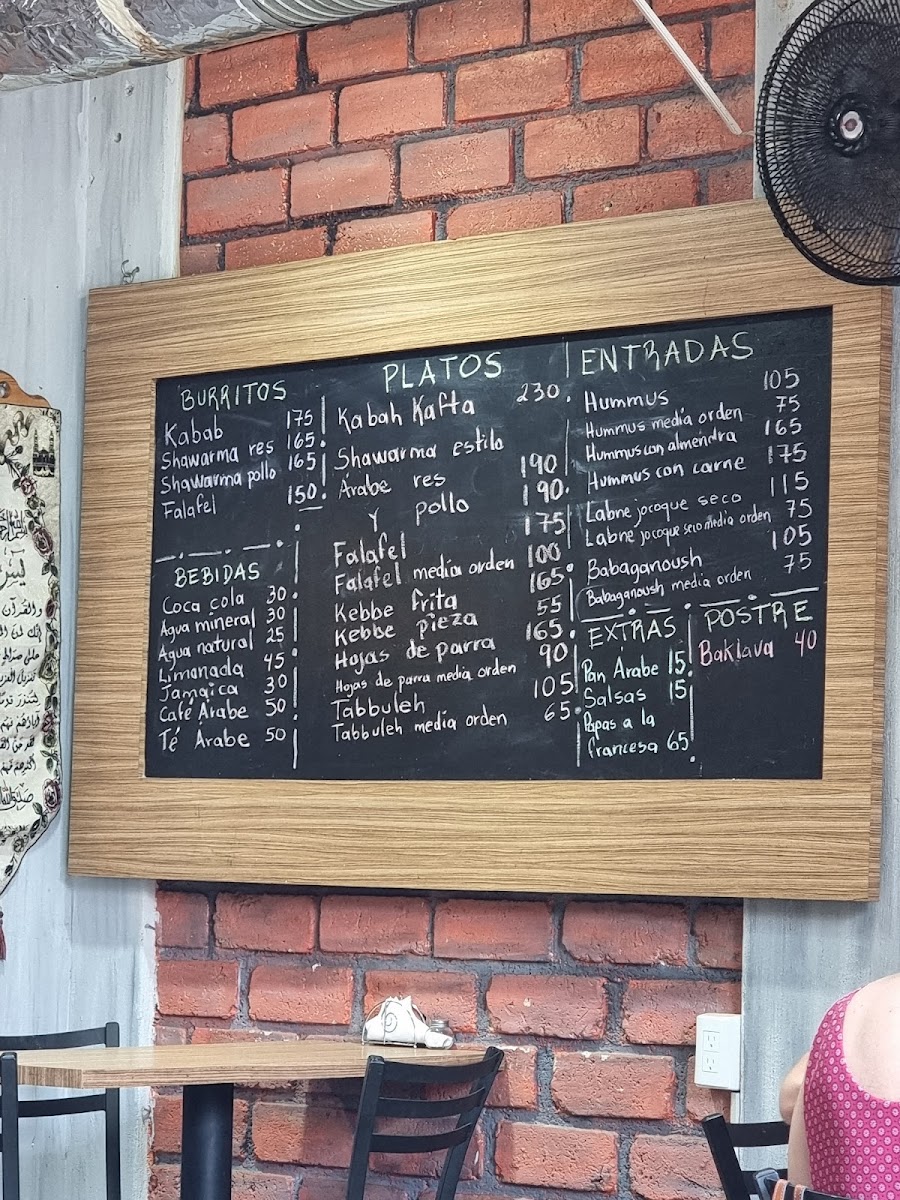 BURRITOS
Kabab 175
Shawarma res 165
Shawarma pollo 165
Falafel 150
BEBIDAS
Coca cola 30
Agua mineral 30
Agua natural 25
Limonada 45
Jamaica 30
Café Arabe 50
Té Arabe 50
PLATOS
Kabah Kafta 230
Shawarma estilo
Arabe res 190
Y pollo 190
Falafel 175
Falafel media orden 100
Kebbe frita 165
Kebbe pieza 55
Hojas de parra 165
Hojas de parra media orden 90
Tabbuleh 105
Tabbuleh media orden 65
ENTRADAS
Hummus 105
Hummus media orden 75
Hummus con almendra 165
Hummus con carne 175
Labne jocoque seco 115
Labne jocoque seco media orden 75
Babaganoush 105
Babaganoush media orden 75
EXTRAS
Pan Arabe 15
Salsas 15
Papas a la
francesa 65
POSTRE
Baklava 40